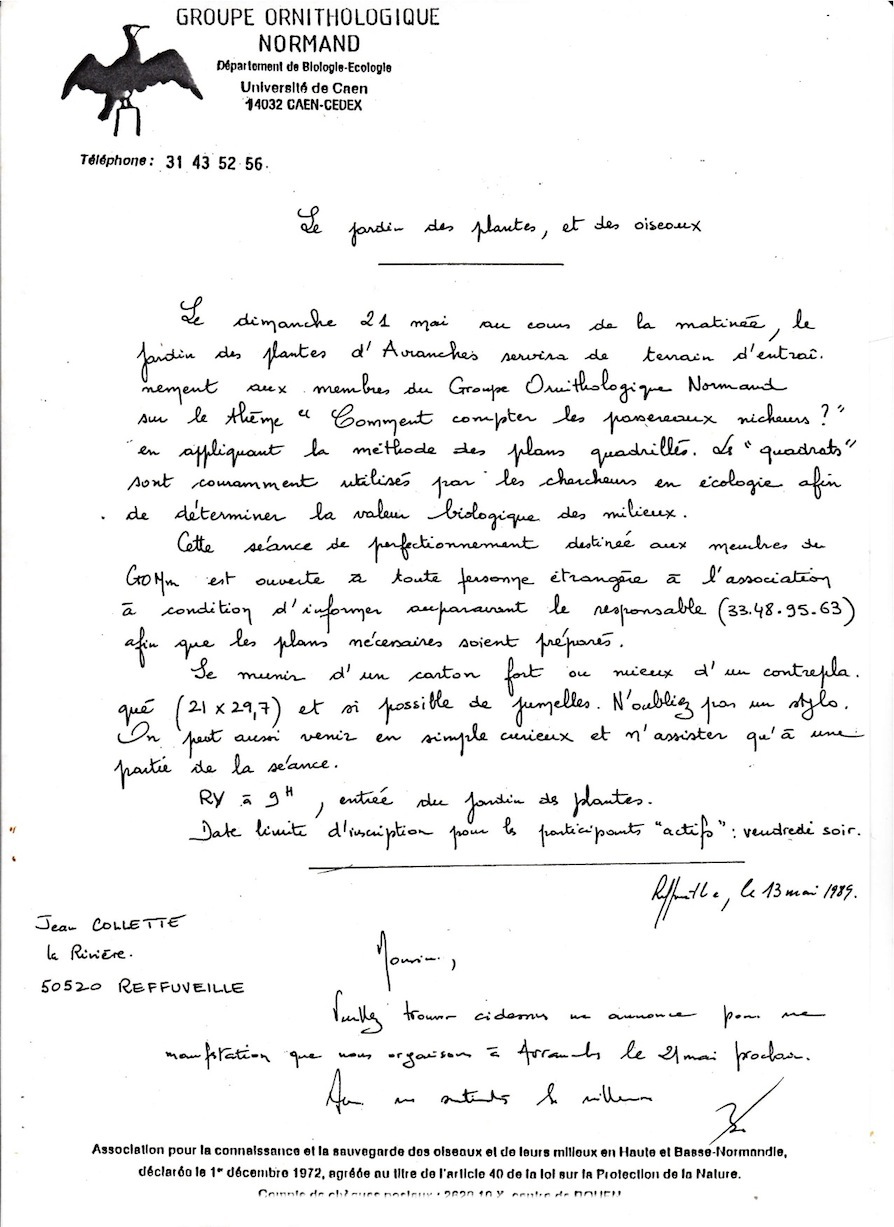 GROUPE ORNITHOLOGIQUE
NORMAND
Département de Biologie-Ecologie
Université de Caen
14032 CAEN-CEDEX
Téléphone: 31 43 52 56.
Le jardin des plantes, et des oiseaux
Le dimanche 21 mai au cours de la matinée, le
jardin des plantes d'Avranches servira de terrain d'entraî-
nement aux membres du Groupe Ornithologique Normand
sur le thème "Comment compter les passereaux nicheurs ?"
en appliquant la méthode des plans quadrillés. Les "quadrats"
sont couramment utilisés par les chercheurs en écologie afin
de déterminer la valeur biologique des milieux.
Cette séance de perfectionnement destinée aux membres du
GONm est ouverte à toute personne étrangère à l'association
à condition d'informer auparavant le responsable (33.48.95.63)
afin que les plans nécessaires soient préparés.
Se munir d'un carton fort ou mieux d'un contrepla-
qué (21 x 29,7) et si possible de jumelles. N'oubliez pas un stylo.
On peut aussi venir en simple curieux et n'assister qu'à une
partie de la séance.
RV à 9H, entrée du jardin des plantes.
Date limite d'inscription pour les participants "actifs" : vendredi soir.
Reffuveille, le 13 mai 1989.
Jean COLLETTE
la Rivière.
50520 REFFUVEILLE
Monsieur,
Veuillez trouver ci dessus une annonce pour une
manifestation que nous organisons à Avranches le 21 mai prochain.
Association pour la connaissance et la sauvegarde des oiseaux et de leurs milieux en Haute et Basse-Normandie,
déclarée le 1er décembre 1972, agréée au titre de l'article 40 de la loi sur la Protection de la Nature.